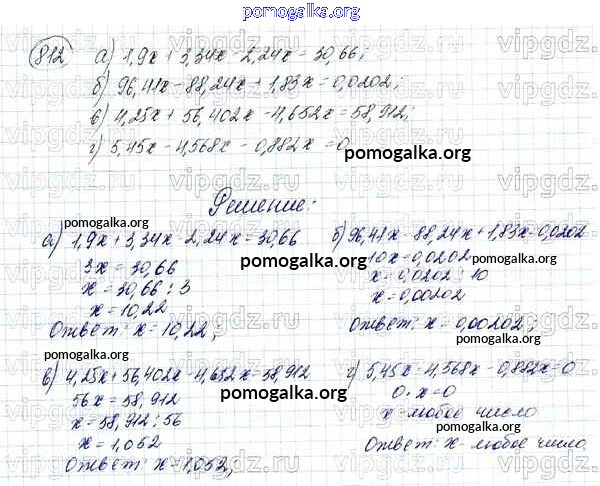 pomogalka.org
812 а) 1,9x + 3,34x - 2,24x = 30,66;
б) 96,41x - 88,24x + 1,83x = 0,0202;
в) 4,25x + 56,402x - 4,652x = 58,912;
г) 5,45x - 4,568x - 0,882x = 0
pomogalka.org
Решение:
pomogalka.org
а) 1,9x + 3,34x - 2,24x = 30,66
3x = 30,66
x = 30,66 : 3
x = 10,22
Ответ: x = 10,22;
pomogalka.org
б) 96,41x - 88,24x + 1,83x = 0,0202
10x = 0,0202
x = 0,0202 : 10
x = 0,00202
Ответ: x = 0,00202;
pomogalka.org
pomogalka.org
в) 4,25x + 56,402x - 4,652x = 58,912
56x = 58,912
x = 58,912 : 56
x = 1,052
Ответ: x = 1,052;
pomogalka.org
г) 5,45x - 4,568x - 0,882x = 0
0 · x = 0
x - любое число
Ответ: x - любое число.
pomogalka.org
vipgdz.ru